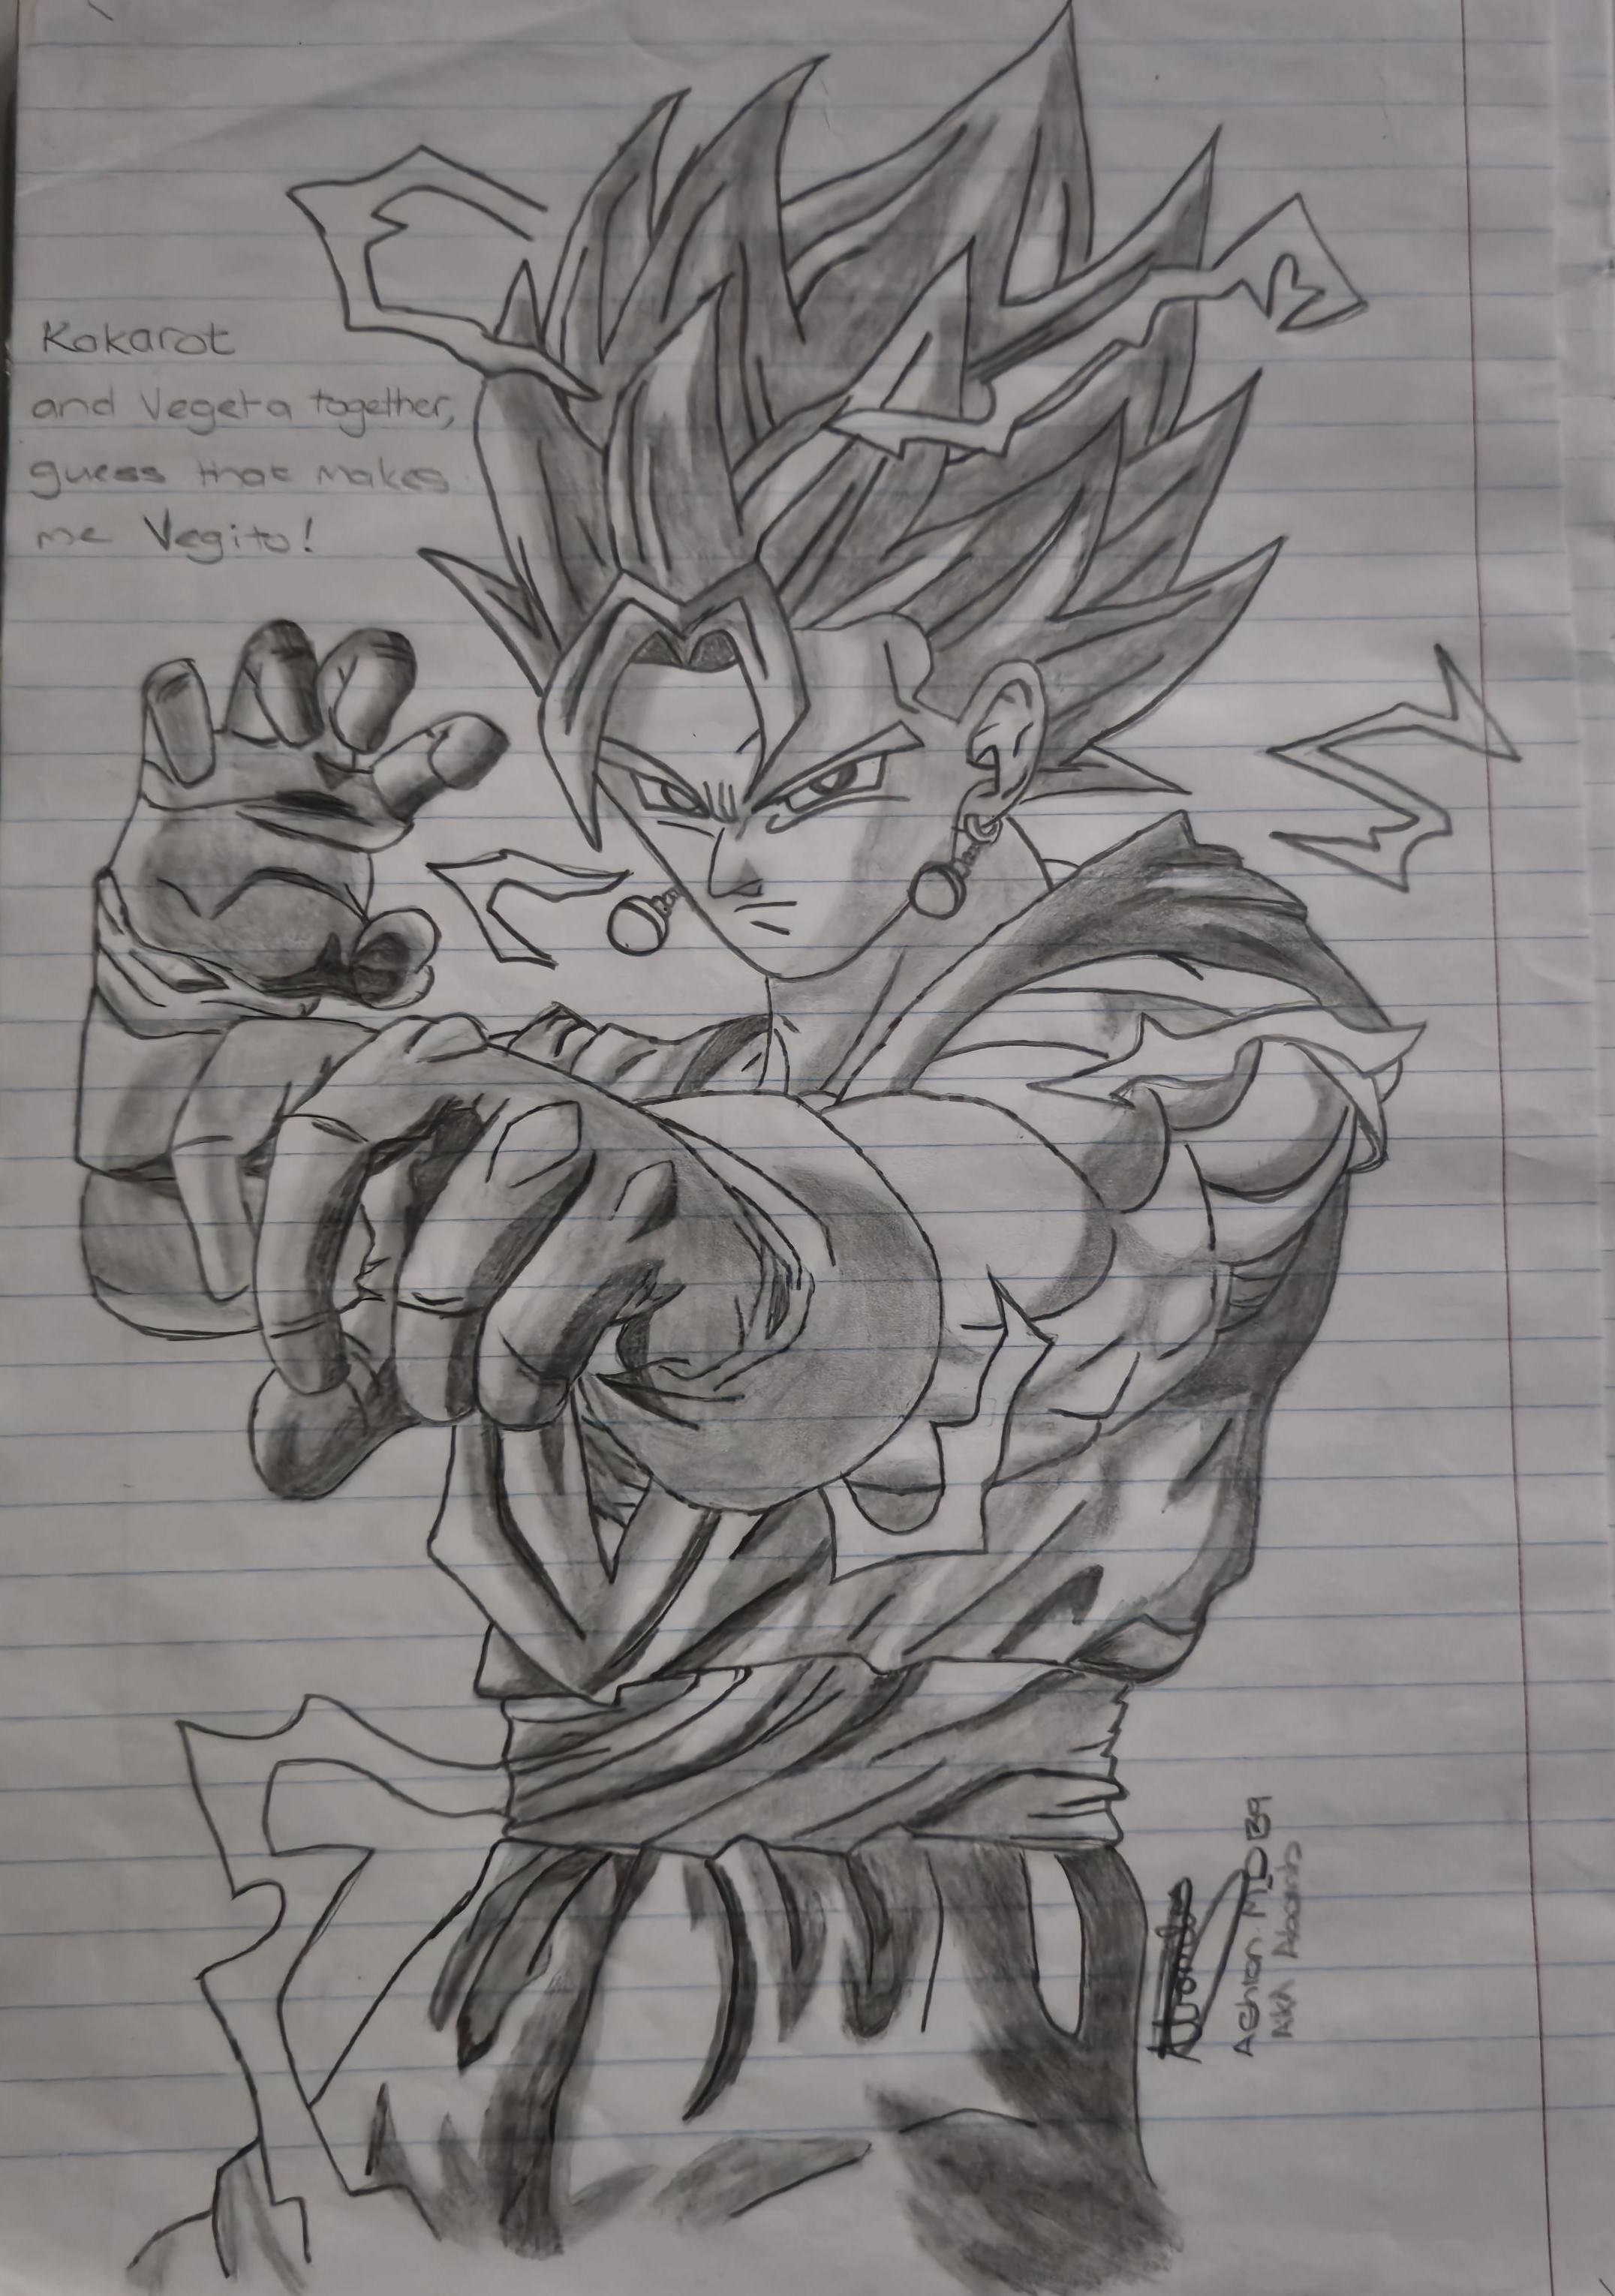 Kakarot
and Vegeta together,
guess that makes
me Vegito!
Ashton. M_DB9
AKA